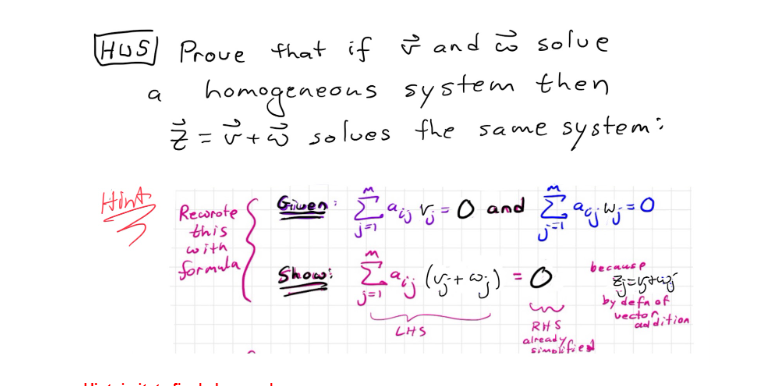 HW5 Prove that if v⃗ and w⃗ solve
a homogeneous system then
z⃗ = v⃗ + w⃗ solves the same system:
Hint
Rewrote
this
with
formula
Given: ∑_{j=1}^{m} a_{ij} v_j = 0 and ∑_{j=1}^{m} a_{ij} w_j = 0
Show: ∑_{j=1}^{m} a_{ij} (v_j + w_j) = 0
LHS
RHS
already
simplified
because
z_j = v_j + w_j
by defn of
vector
addition